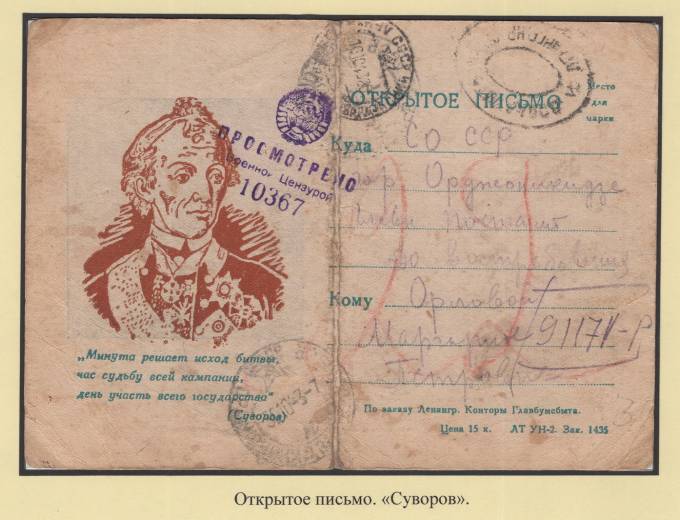 ОТКРЫТОЕ ПИСЬМО
Место
для
марки
ПРОСМОТРЕНО
Военной Цензурой
10367
Куда
СО ССР
гор Орджоникидзе
почтамт
до востребования
Кому
Орловой
Маргарите
Петровне
91171-Р
„Минута решает исход битвы,
час судьбу всей кампании,
день участь всего государства"
(Суворов)
По заказу Ленингр. Конторы Главбумсбыта.
Цена 15 к. АТ УН-2. Зак. 1435
Открытое письмо. «Суворов».